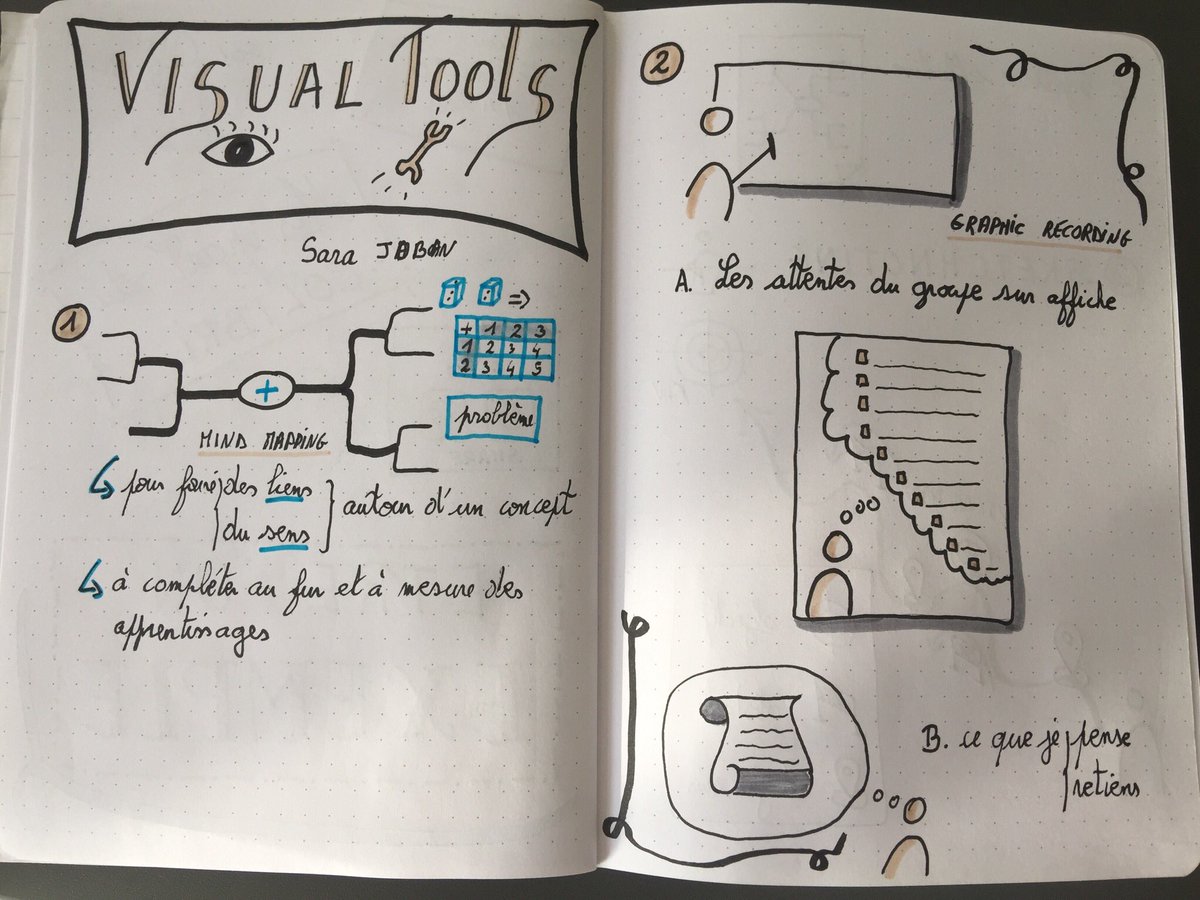 VISUAL TOOLS
Sara
1
+
⇒
+ 1 2 3
1 2 3 4
2 3 4 5
problème
MIND MAPPING
↳ pour faire des liens
du sens
autour d'un concept
↳ à compléter au fur et à mesure des
apprentissages
2
GRAPHIC RECORDING
A. Les attentes du groupe sur affiche
B. ce que je pense
retiens